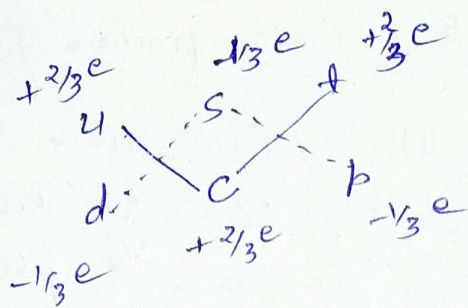 -1/3 e +2/3 e
+2/3 e
u s t
d c b
-1/3 e +2/3 e -1/3 e